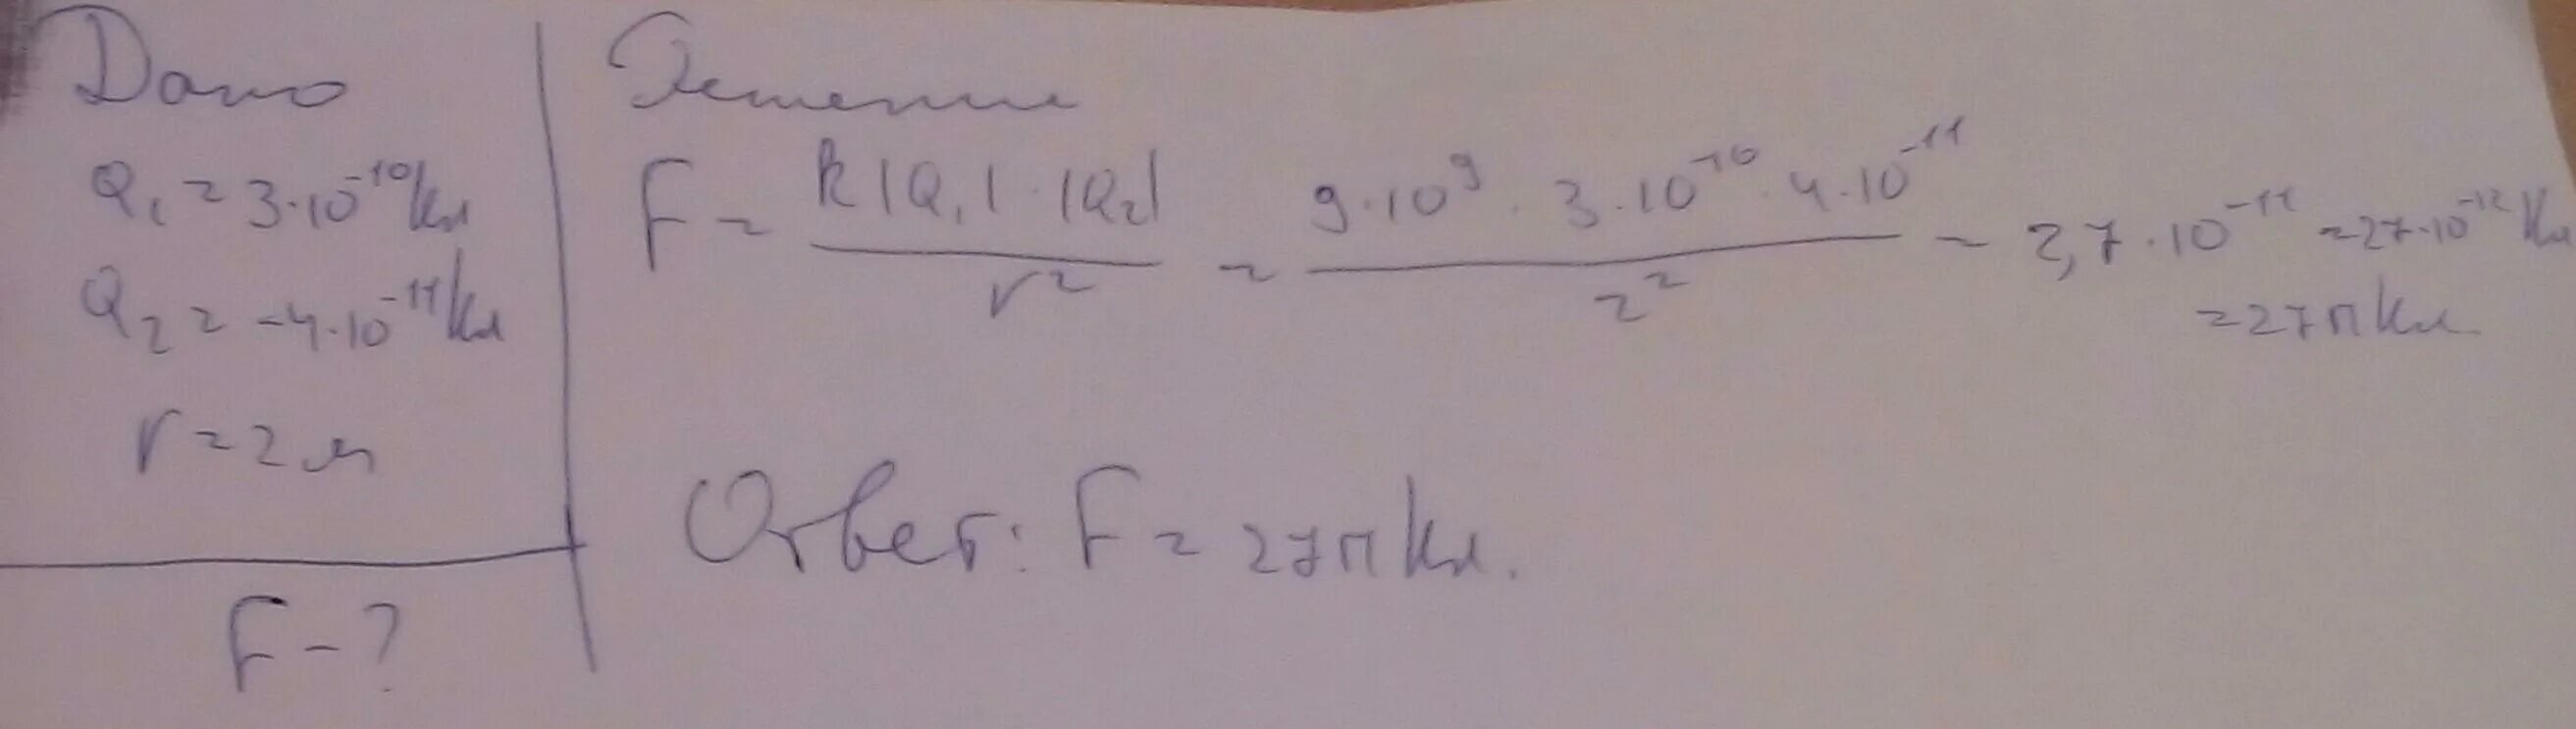 Дано
Q₁ = 3·10⁻¹⁰ Кл
Q₂ = -4·10⁻¹¹ Кл
r = 2 м
F - ?
Решение
F = k|Q₁|·|Q₂| / r² = 9·10⁹ · 3·10⁻¹⁰ · 4·10⁻¹¹ / 2² = 2,7·10⁻¹¹ = 27·10⁻¹² Кл
= 27пКл
Ответ: F = 27пКл.